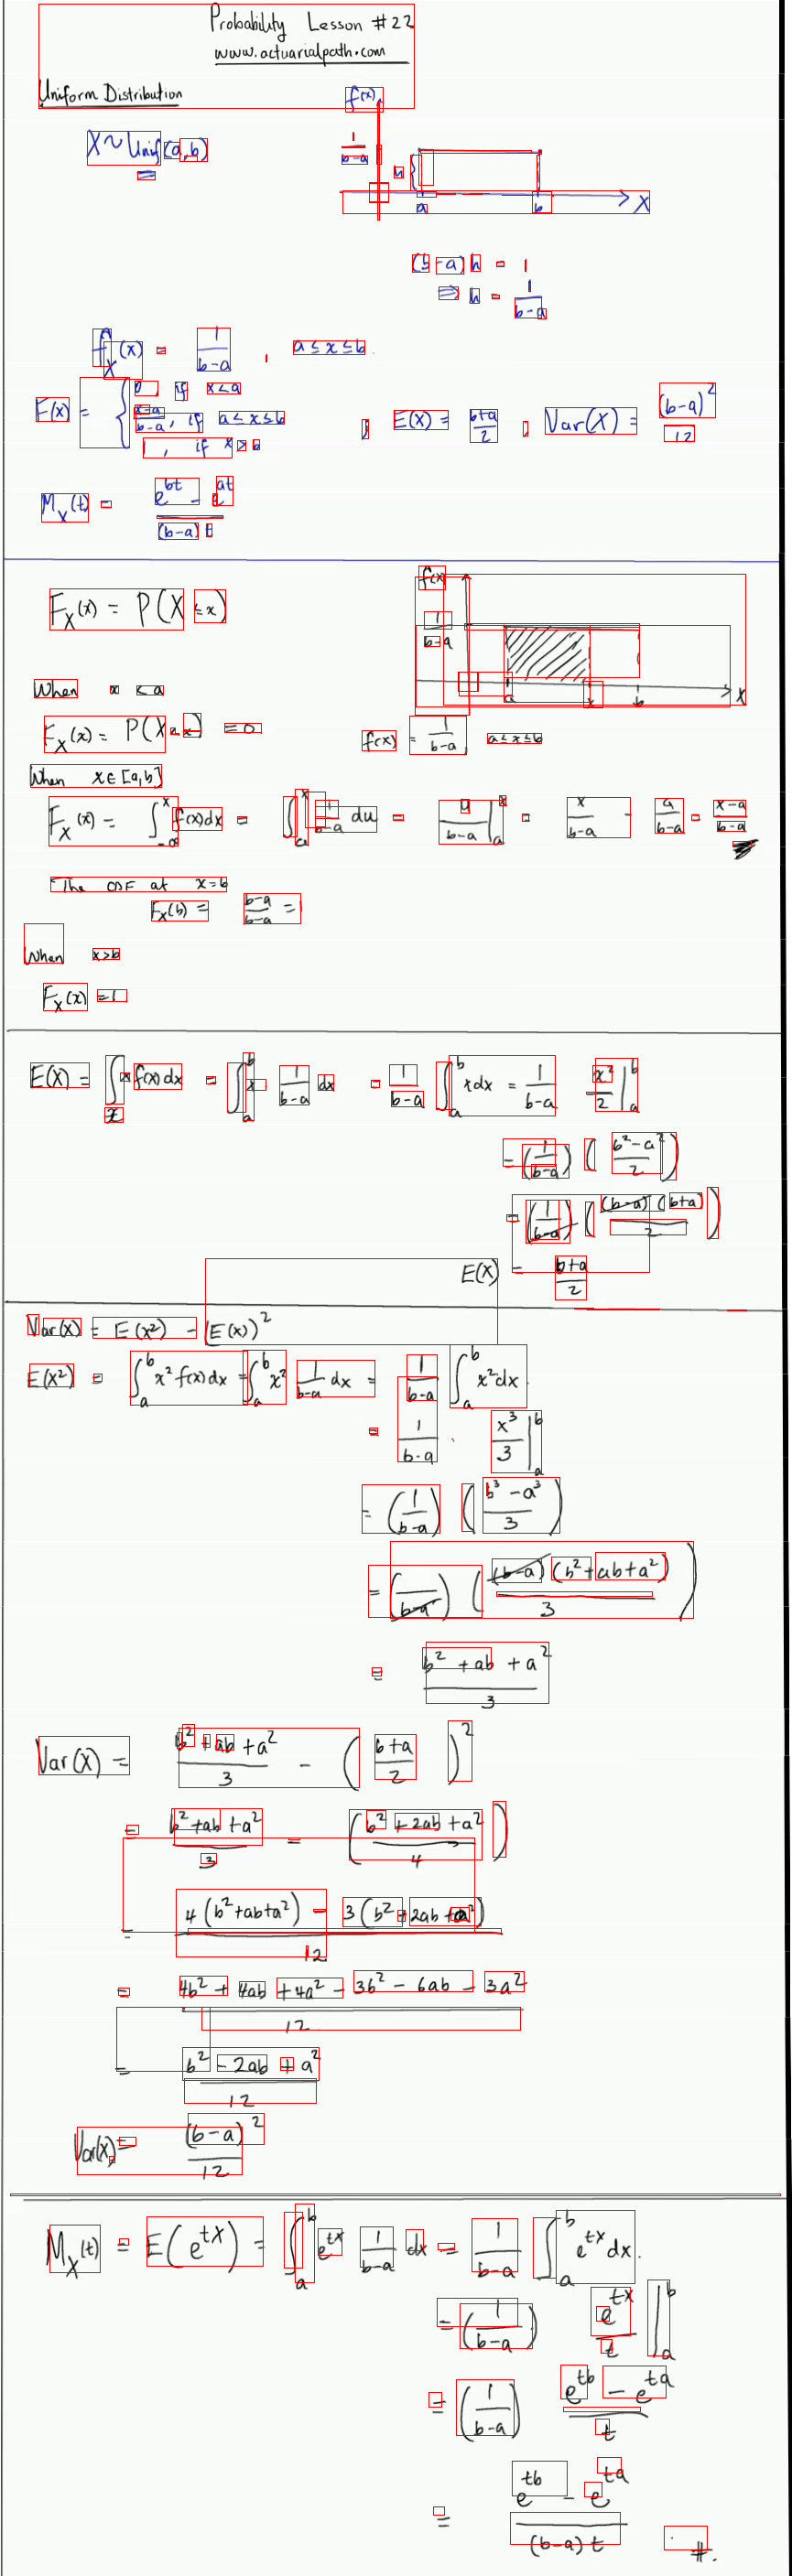 Probability Lesson #22
www.actuarialpath.com
Uniform Distribution
f(x)
X ~ Unif (a,b)
1/(b-a)
h {
a b X
(b-a) h = 1
⇒ h = 1/(b-a)
f_X(x) = 1/(b-a) , a ≤ x ≤ b.
F(x) = { 0, if x < a
(x-a)/(b-a), if a ≤ x ≤ b
1, if x > b
; E(X) = (b+a)/2 ; Var(X) = (b-a)^2/12
M_X(t) = (e^bt - e^at)/((b-a)t)
F_X(x) = P(X ≤ x)
f(x)
1/(b-a)
a x b X
f(x) = 1/(b-a), a ≤ x ≤ b
When x < a
F_X(x) = P(X ≤ x) = 0
When x ∈ [a,b]
F_X(x) = ∫_{-∞}^x f(x)dx = ∫_a^x 1/(b-a) du = u/(b-a) |_a^x = x/(b-a) - a/(b-a) = (x-a)/(b-a)
The CDF at x=b
F_X(b) = (b-a)/(b-a) = 1
When x>b
F_X(x) = 1
E(X) = ∫_x x f(x) dx = ∫_a^b x 1/(b-a) dx = 1/(b-a) ∫_a^b x dx = 1/(b-a) x^2/2 |_a^b
= (1/(b-a)) ((b^2-a^2)/2)
= (1/(b-a)) ((b-a)(b+a)/2)
E(X) = (b+a)/2
Var(X) = E(X^2) - [E(X)]^2
E(X^2) = ∫_a^b x^2 f(x)dx = ∫_a^b x^2 1/(b-a) dx = 1/(b-a) ∫_a^b x^2 dx.
= 1/(b-a) · x^3/3 |_a^b
= (1/(b-a)) ((b^3 - a^3)/3)
= (1/(b-a)) ((b-a)(b^2+ab+a^2)/3)
= (b^2 + ab + a^2)/3
Var(X) = (b^2 + ab + a^2)/3 - ((b+a)/2)^2
= (b^2 + ab + a^2)/3 - ((b^2 + 2ab + a^2)/4)
= (4(b^2+ab+a^2) - 3(b^2+2ab+a^2))/12
= (4b^2 + 4ab + 4a^2 - 3b^2 - 6ab - 3a^2)/12
= (b^2 - 2ab + a^2)/12
Var(X) = (b-a)^2/12
M_X(t) = E(e^tX) = ∫_a^b e^tx 1/(b-a) dx = 1/(b-a) ∫_a^b e^tx dx.
= (1/(b-a)) e^tx/t |_a^b
= (1/(b-a)) (e^tb - e^ta)/t
= (e^tb - e^ta)/((b-a)t) #.